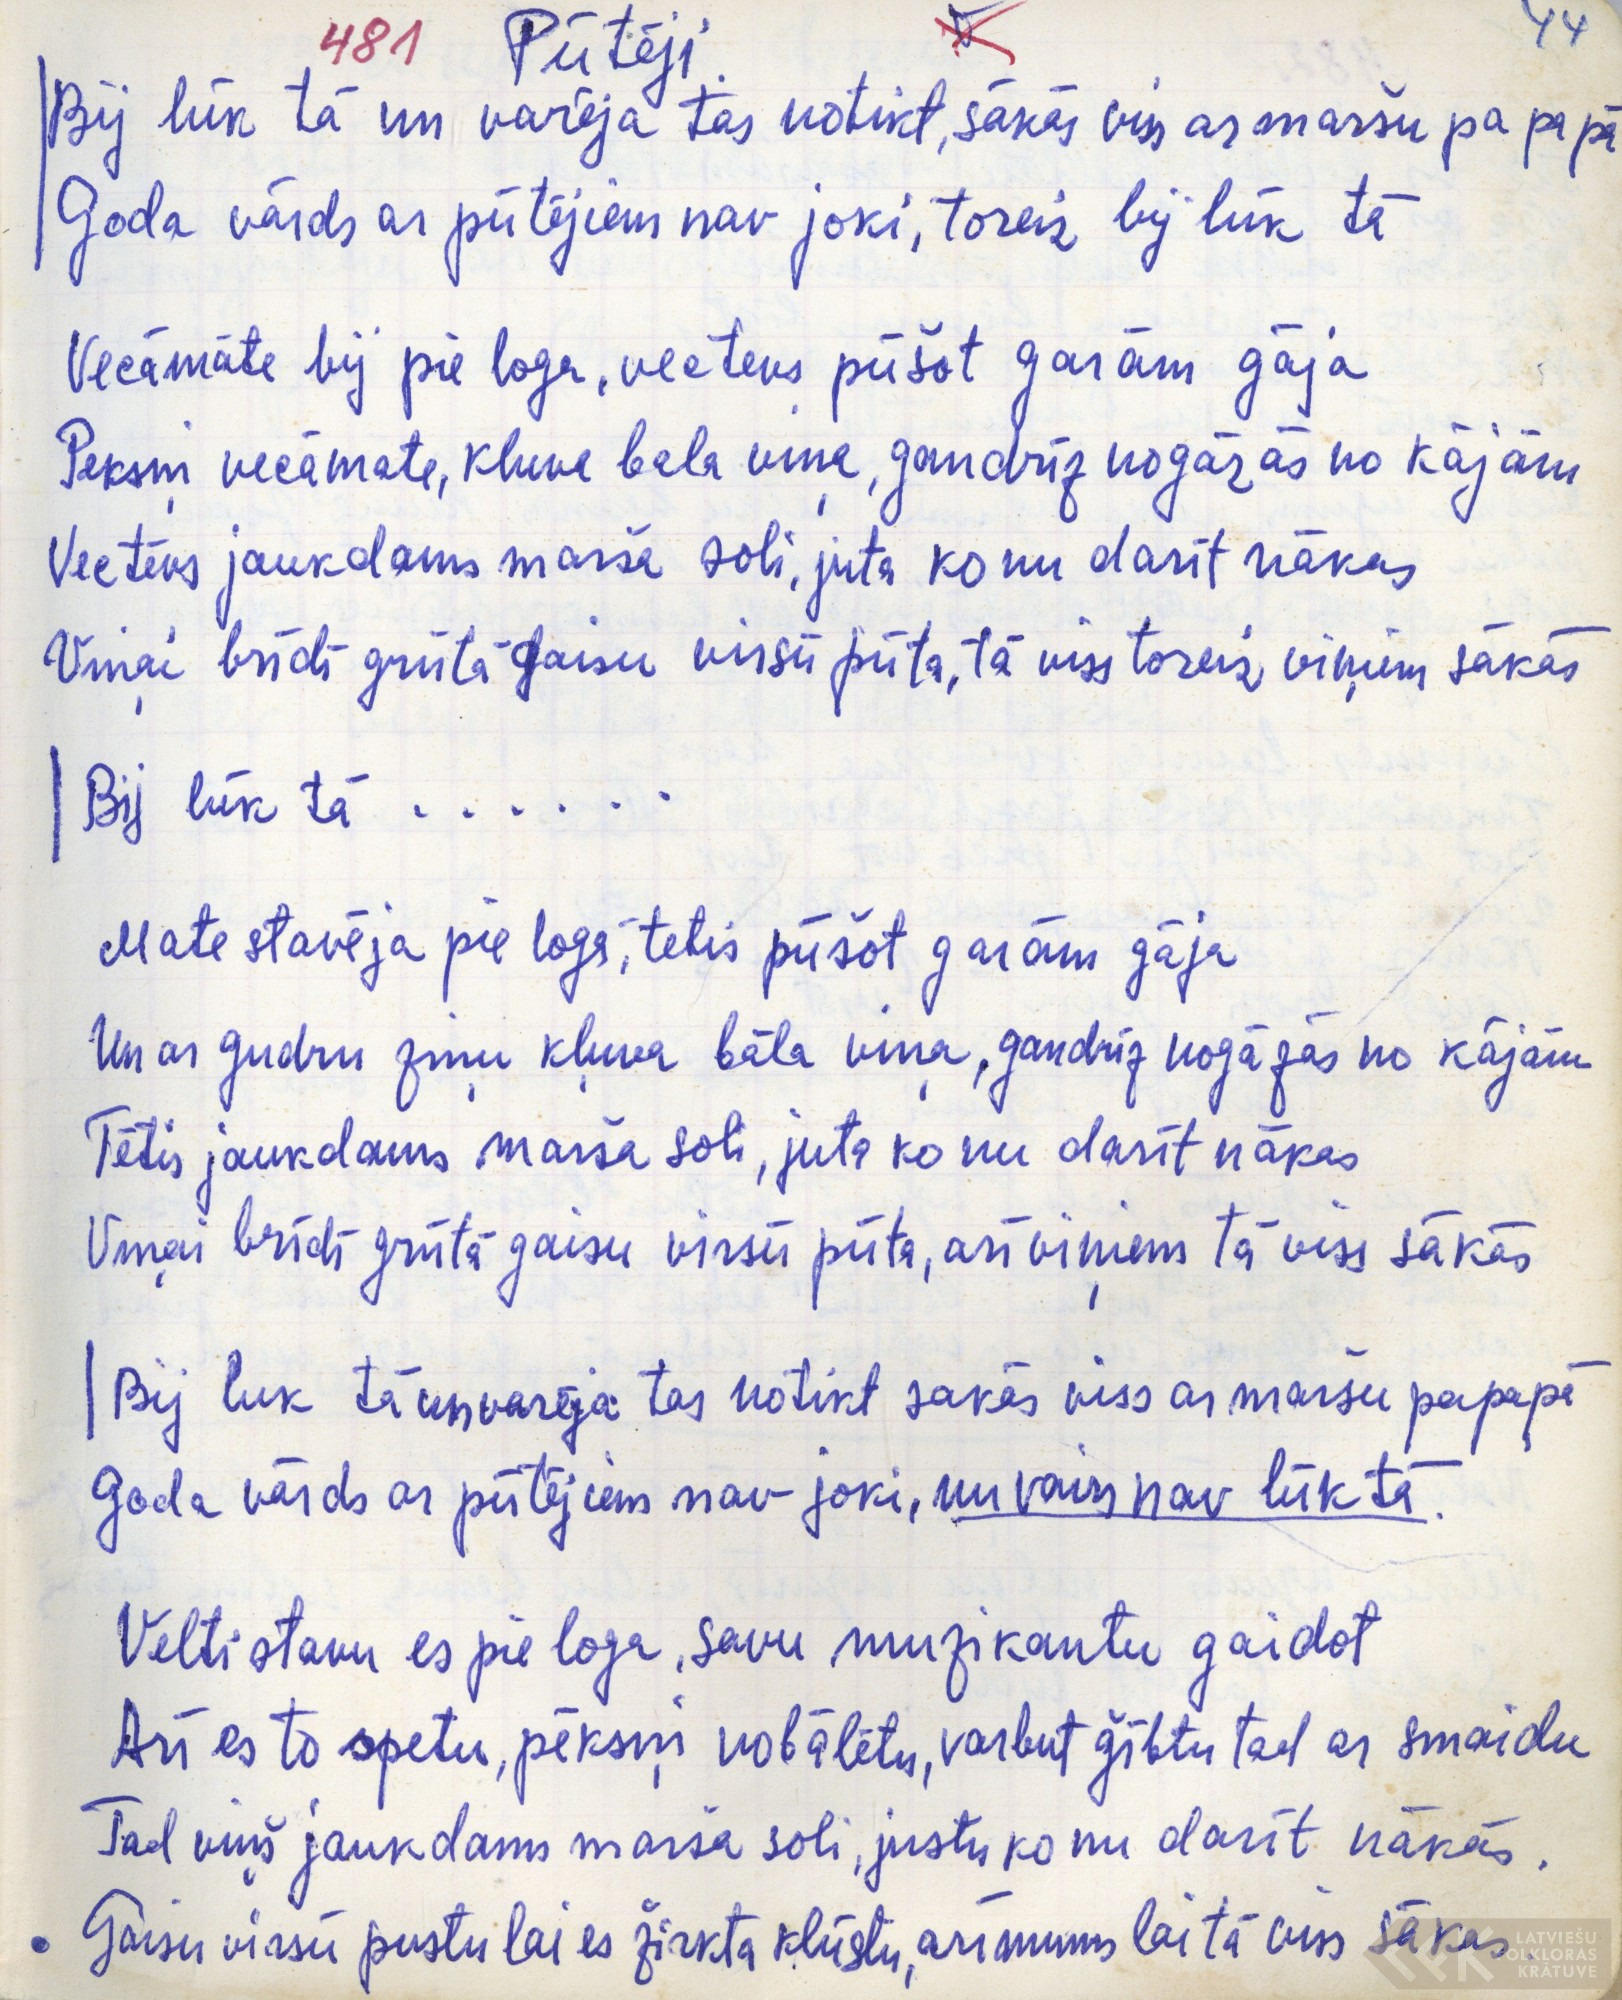 481 Pūtēji. 44
Bij lūk tā un varēja tas notikt, sākās viss ar maršu pa pa pā
Goda vārds ar pūtējiem nav joki, toreiz bij lūk tā
Vecāmāte bij pie loga, vectevs pūšot garām gāja
Peksņi vecāmate, kluva bala viņa, gandrīz nogāzās no kājām
Vectēvs jaukdams marša soli, juta ko nu darīt nākas
Viņai brīdī grūtā gaisu virsū pūta, tā viss toreiz viņiem sākās
Bij lūk tā . . . . . .
Mate stavēja pie logā, tetis pūšot garām gāja
Un ar gudru ziņu kļuva bāla viņa, gandrīz nogāzās no kājām
Tētis jaukdams marša soli, juta ko nu darīt nākas
Viņai brīdī grūtā gaisu virsū pūta, arī viņiem tā viss sākās
Bij luk tā un varēja tas notikt sakās viss ar maršu papapā
Goda vārds ar pūtējiem nav joki, nu vain nav lūk tā.
Velti stavu es pie loga, savu muzikantu gaidot
Arī es to spetu, pēksņi nobālētu, varbut ģībtu tad ar smaidu
Tad viņš jaukdams marša soli, justu ko nu darīt nākās.
Gaisu virsū pustu lai es žirkta klūstu, arī mums lai tā viss sākas.
LATVIEŠU
FOLKLORAS
KRĀTUVE